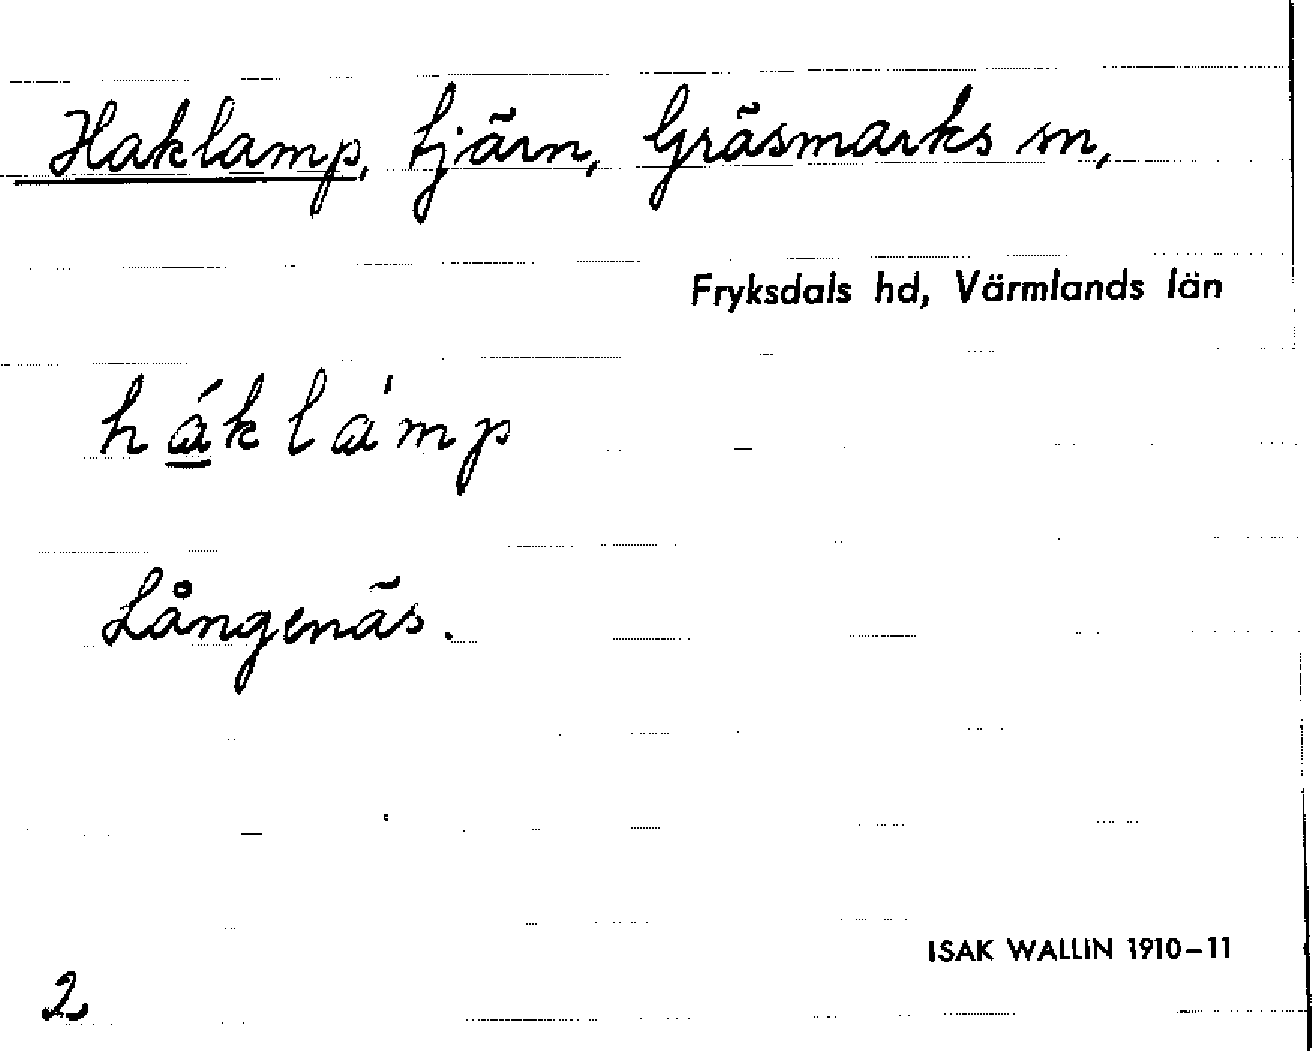 Haklamp, tjärn, Gräsmarks sn,
Fryksdals hd, Värmlands län
háklámp
Långenäs.
ISAK WALLIN 1910–11
2